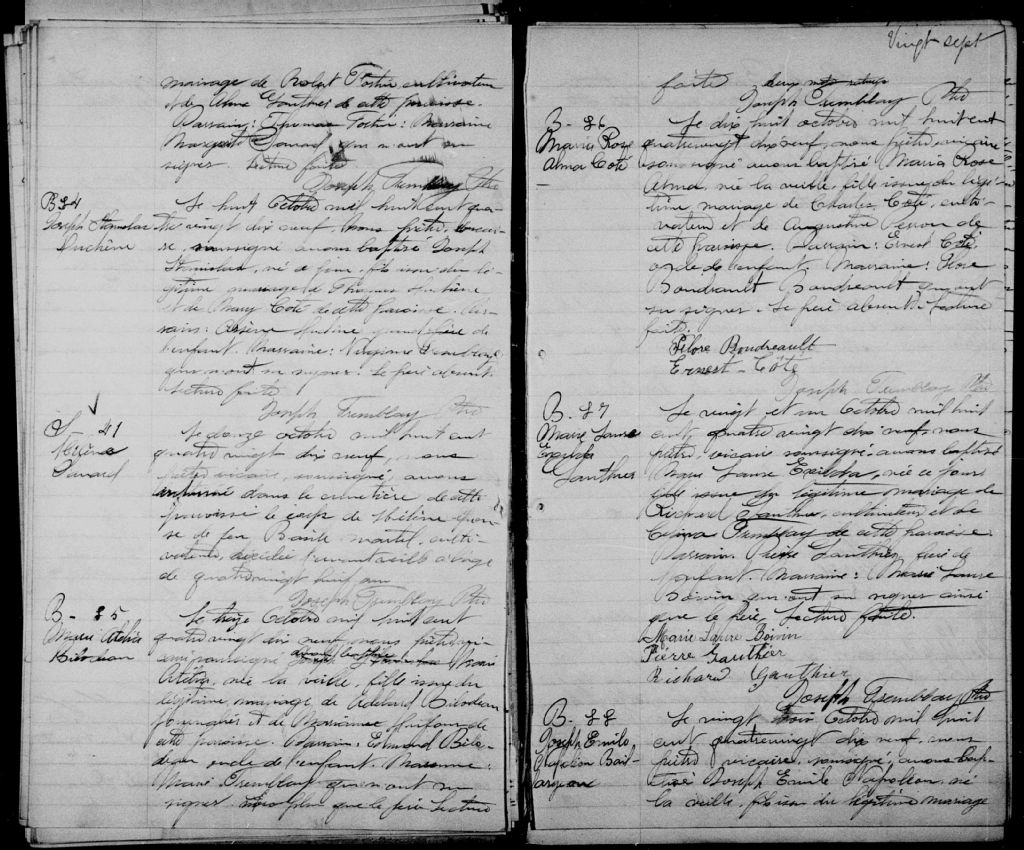 mariage de Robert Fortin cultivateur
et de Alma Gauthier de cette paroisse.
Parrain: Thomas Fortin: Marraine
Margerite Savard qui n'ont su
signer. Lecture faite
Joseph Tremblay Ptre
B 84
Joseph Stanislas
Duchène
Le huit Octobre mil huit cent qua-
tre vingt dix neuf, nous prêtre, vicai-
re, soussigné avons baptisé Joseph
Stanislas, né ce jour, fils issu du lé-
gitime mariage de Thomas Duchène
et de Mary Coté de cette paroisse. Par-
rain: Arsène Duchène, grand'père de
l'enfant. Marraine: Virginie
qui n'ont su signer. Le père absent.
Lecture faite
Joseph Tremblay Ptre
S - 41
Hélène
Savard
Le douze octobre mil huit cent
quatre vingt dix neuf, nous
prêtre vicaire, soussigné, avons
inhumé dans le cimetière de cette
paroisse le corps de Hélène épou-
se de feu Basile Martel, culti-
vateur, décédée l'avant veille à l'age
de quatrevingt neuf ans
Joseph Tremblay Ptre
B - 85
Marie Adélia
Bilodeau
Le treize Octobre mil huit cent
quatre vingt dix neuf, nous prêtre vi-
caire soussigné avons baptisé Marie
née la veille, fille issue du
légitime mariage de Adélard Bilodeau
journalier et de Marianne Dufour de
cette paroisse. Parrain: Edmond Bilo-
deau oncle de l'enfant. Marraine:
Marie Tremblay qui n'ont su
signer non plus que le père Lecture
Vingt sept
faite
Joseph Tremblay Ptre
B - 86
Marie Rose
Alma Coté
Le dix huit octobre mil huit cent
quatrevingt dix neuf, nous prêtre, vicaire
soussigné avons baptisé Marie Rose
Alma, née la veille, fille issue du légi-
time mariage de Charles Coté, culti-
vateur et de Augustine Perron de
cette paroisse. Parrain: Ernest Coté
oncle de l'enfant. Marraine: Flore
Boudreault Boudreault qui ont
su signer. Le père absent. Lecture
faite.
Flore Boudreault
Ernest Côté
Joseph Tremblay Ptre
B. 87
Marie Laure
Exilda
Gauthier
Le vingt et un Octobre mil huit
cent quatre vingt dix neuf, nous
prêtre, vicaire soussigné, avons baptisé
Marie Laure Exilda, née ce jour
fille issue du légitime mariage de
Richard Gauthier, cultivateur et de
Célina Tremblay de cette paroisse.
Parrain: Pierre Gauthier, frère de
l'enfant. Marraine: Marie Laure
Boivin qui ont su signer ainsi
que le père. Lecture faite.
Marie Laure Boivin
Pierre Gauthier
Richard Gauthier
Joseph Tremblay Ptre
B - 88
Joseph Emile
Napoléon Bail-
largeon
Le vingt trois Octobre mil huit
cent quatrevingt dix neuf, nous
prêtre vicaire, soussigné, avons bap-
tisé Joseph Emile Napoléon, né
la veille, fils issu du légitime mariage